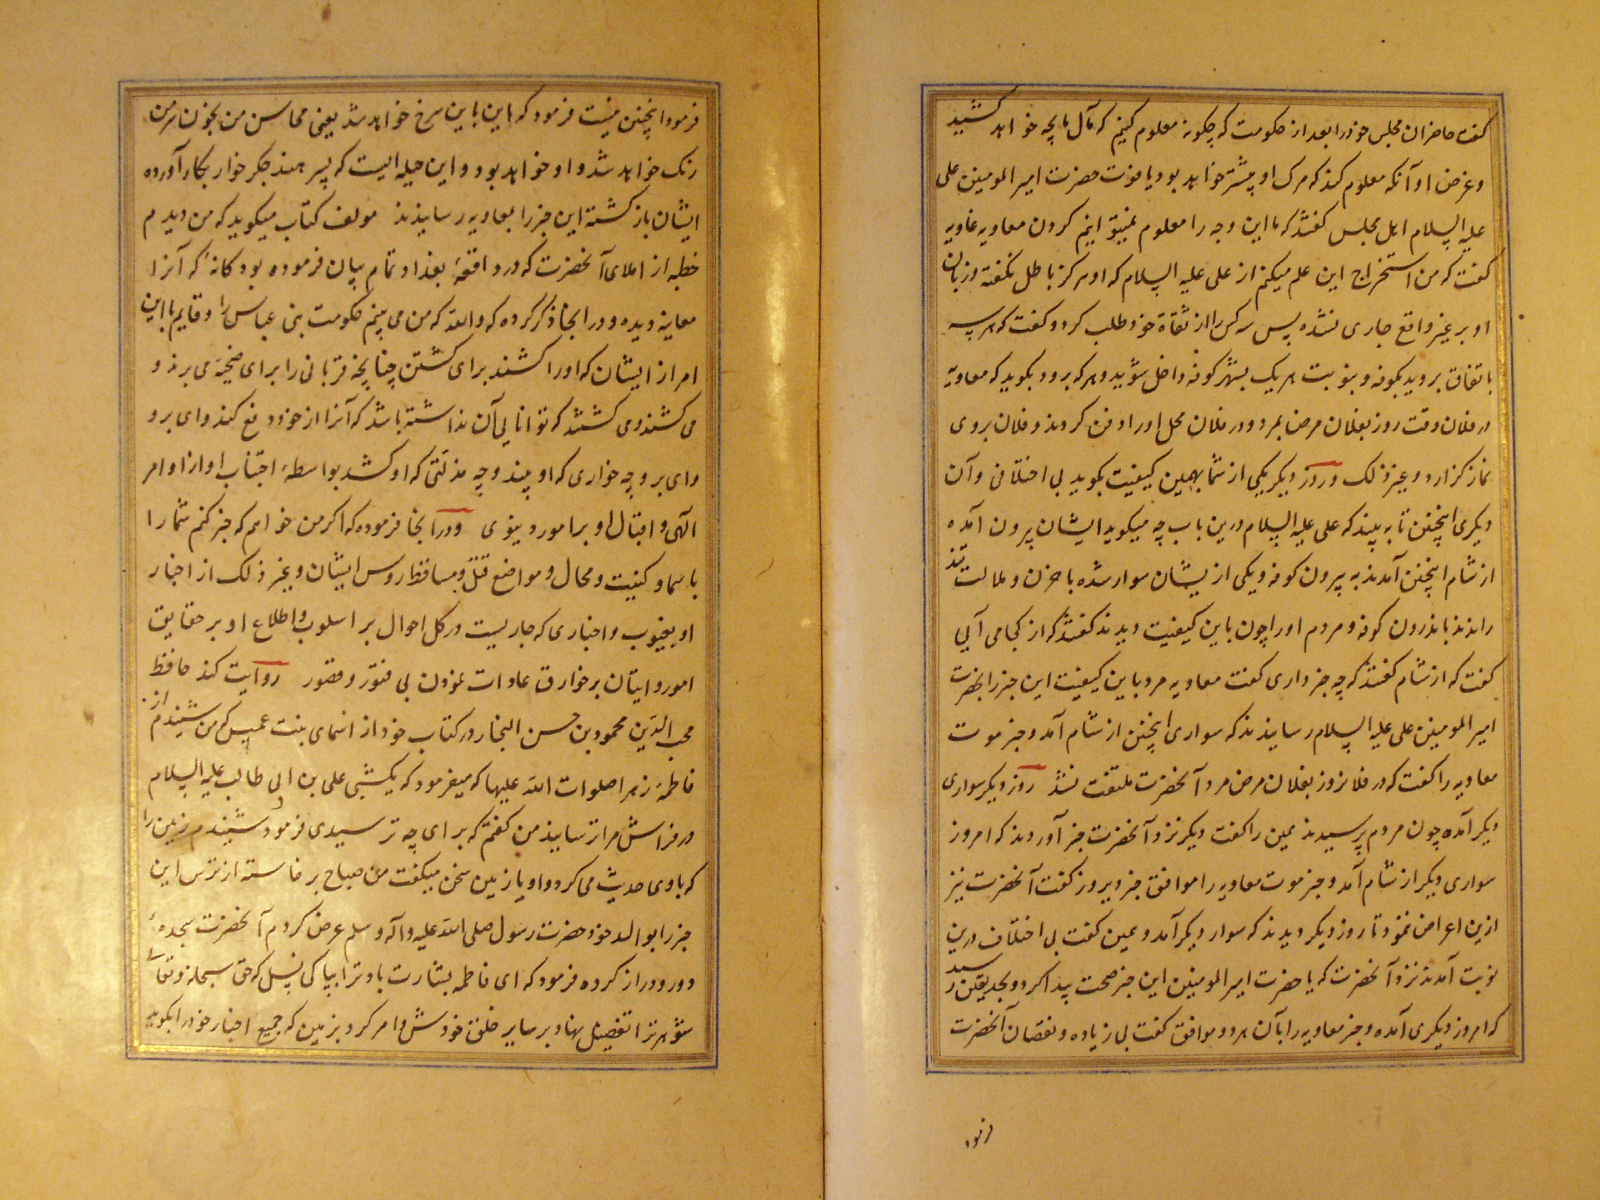 گفت حاضران مجلس خود را بعد از حکومت که چکونه معلوم کنیم که مآل ما بچه خواهد کشید
و غرض او آنکه معلوم کند که مرک او پیشتر خواهد بود یا فوت حضرت امیر المومنین علی
علیه السلام اهل مجلس گفتند که ما این وجه را معلوم نمیتوانیم کردن معاویه غاویه
کفت که من استخراج این علم میکنم از علی علیه السلام که او هرکز باطل نکفته و زبان
او بر غیر واقع جاری نشده پس سه کس را از ثقاة خود طلب کرد و کفت که هر سه
باتفاق بروید بکوفه و بنوبت هر یک بشهر کوفه داخل شوید و هر که برود بکوید که معاویه
در فلان وقت روز بفلان مرض بمرد و در فلان محل او را دفن کردند و فلان بروی
نماز کزارد و غیر ذلک و روز دیکر یکی از شما بهمین کیفیت بکوید بی اختلافی و آن
دیکری اینچنین تا به بیند که علی علیه السلام درین باب چه میکوید ایشان بیرون آمده
از شام اینچنین آمدند به بیرون کوفه و یکی از یشان سوار شده با حزن و ملالت تند
راندند باندرون کوفه و مردم او را چون باین کیفیت دیدند کفتند که از کجا می آیی
کفت که از شام کفتند که چه خبر داری کفت معاویه مرد باین کیفیت این خبر را بحضرت
امیر المومنین علی علیه السلام رسانیدند که سواری اینچنین از شام آمد و خبر موت
معاویه را کفت که در فلان روز بفلان مرض مرد آنحضرت ملتفت نشد روز دیکر سواری
دیکر آمده چون مردم پرسیدند همین را کفت دیکر نزد آنحضرت خبر آوردند که امروز
سواری دیکر از شام آمد و خبر موت معاویه را موافق خبر دیروز کفت آنحضرت نیز
ازین اعراض نمود تا روز دیکر دیدند که سوار دیکر آمد و همین کفت بی اختلاف درین
نوبت آمدند نزد آنحضرت که یا حضرت امیر المومنین این خبر صحت پیدا کرد و بحد یقین رسید
که امروز دیکری آمده و خبر معاویه را بآن هر دو موافق کفت بی زیاده و نقصان آنحضرت
فرمود
فرمود اینچنین نیست فرمود که این باین سرخ خواهد شد یعنی محاسن من بخون سر من
رنک خواهد شد و او خواهد بود و این حیله ایست که پسر هند جکر خوار بکار آورده
ایشان باز کشته این خبر را بمعاویه رسانیدند مولف کتاب میکوید که من دیدم
خطبه از املای آنحضرت که در واقعهٔ بغداد تمام بیان فرموده بود کانه که آنرا
معاینه دیده و در آنجا ذکر کرده که والله که من می بینم حکومت بنی عباس را و قایم باین
امر از ایشان که او را کشند برای کشتن چنانچه قربانی را برای ضحیه می برند و
می کشند و می کشند که توانایی آن نداشته باشد که آنرا از خود دفع کند وای برو
وای برو چه خواری که او بیند و چه مذلتی که او کشد بواسطهٔ اجتناب او از اوامر
الهی و اقبال او بر امور دنیوی و در آنجا فرموده که اکر من خواهم که خبر کنم شما را
باسما و کنیت و محال و مواضع قتل و مساقط روس ایشان و غیر ذلک از اخبار
او بغیوب و اخباری که جاریست در کل احوال بر اسلوب و اطلاع او بر حقایق
امور و اتیان بر خوارق عادات نمودن بی فتور و قصور روایت کند حافظ
محب الدین محمود بن حسن النجار در کتاب خود از اسمای بنت عمیس که من شنیدم از
فاطمهٔ زهرا صلوات الله علیها که میفرمود که یکشبی علی بن ابی طالب علیه السلام
در فراش مرا ترسانید من کفتم که برای چه ترسیدی فرمود شنیدم زمین را
که با وی حدیث می کرد و او با زمین سخن میکفت من صباح برخاسته از ترس این
خبر را بوالد خود حضرت رسول صلی الله علیه و آله و سلم عرض کردم آنحضرت سجدهٔ
دور و دراز کرده فرمود که ای فاطمه بشارت باد ترا بپاکی نسل که حق سبحانه و تعالی
شوهر ترا تفضیل نهاد بر سایر خلق خودش و امر کرد بزمین که جمیع اخبار خود را بکوید